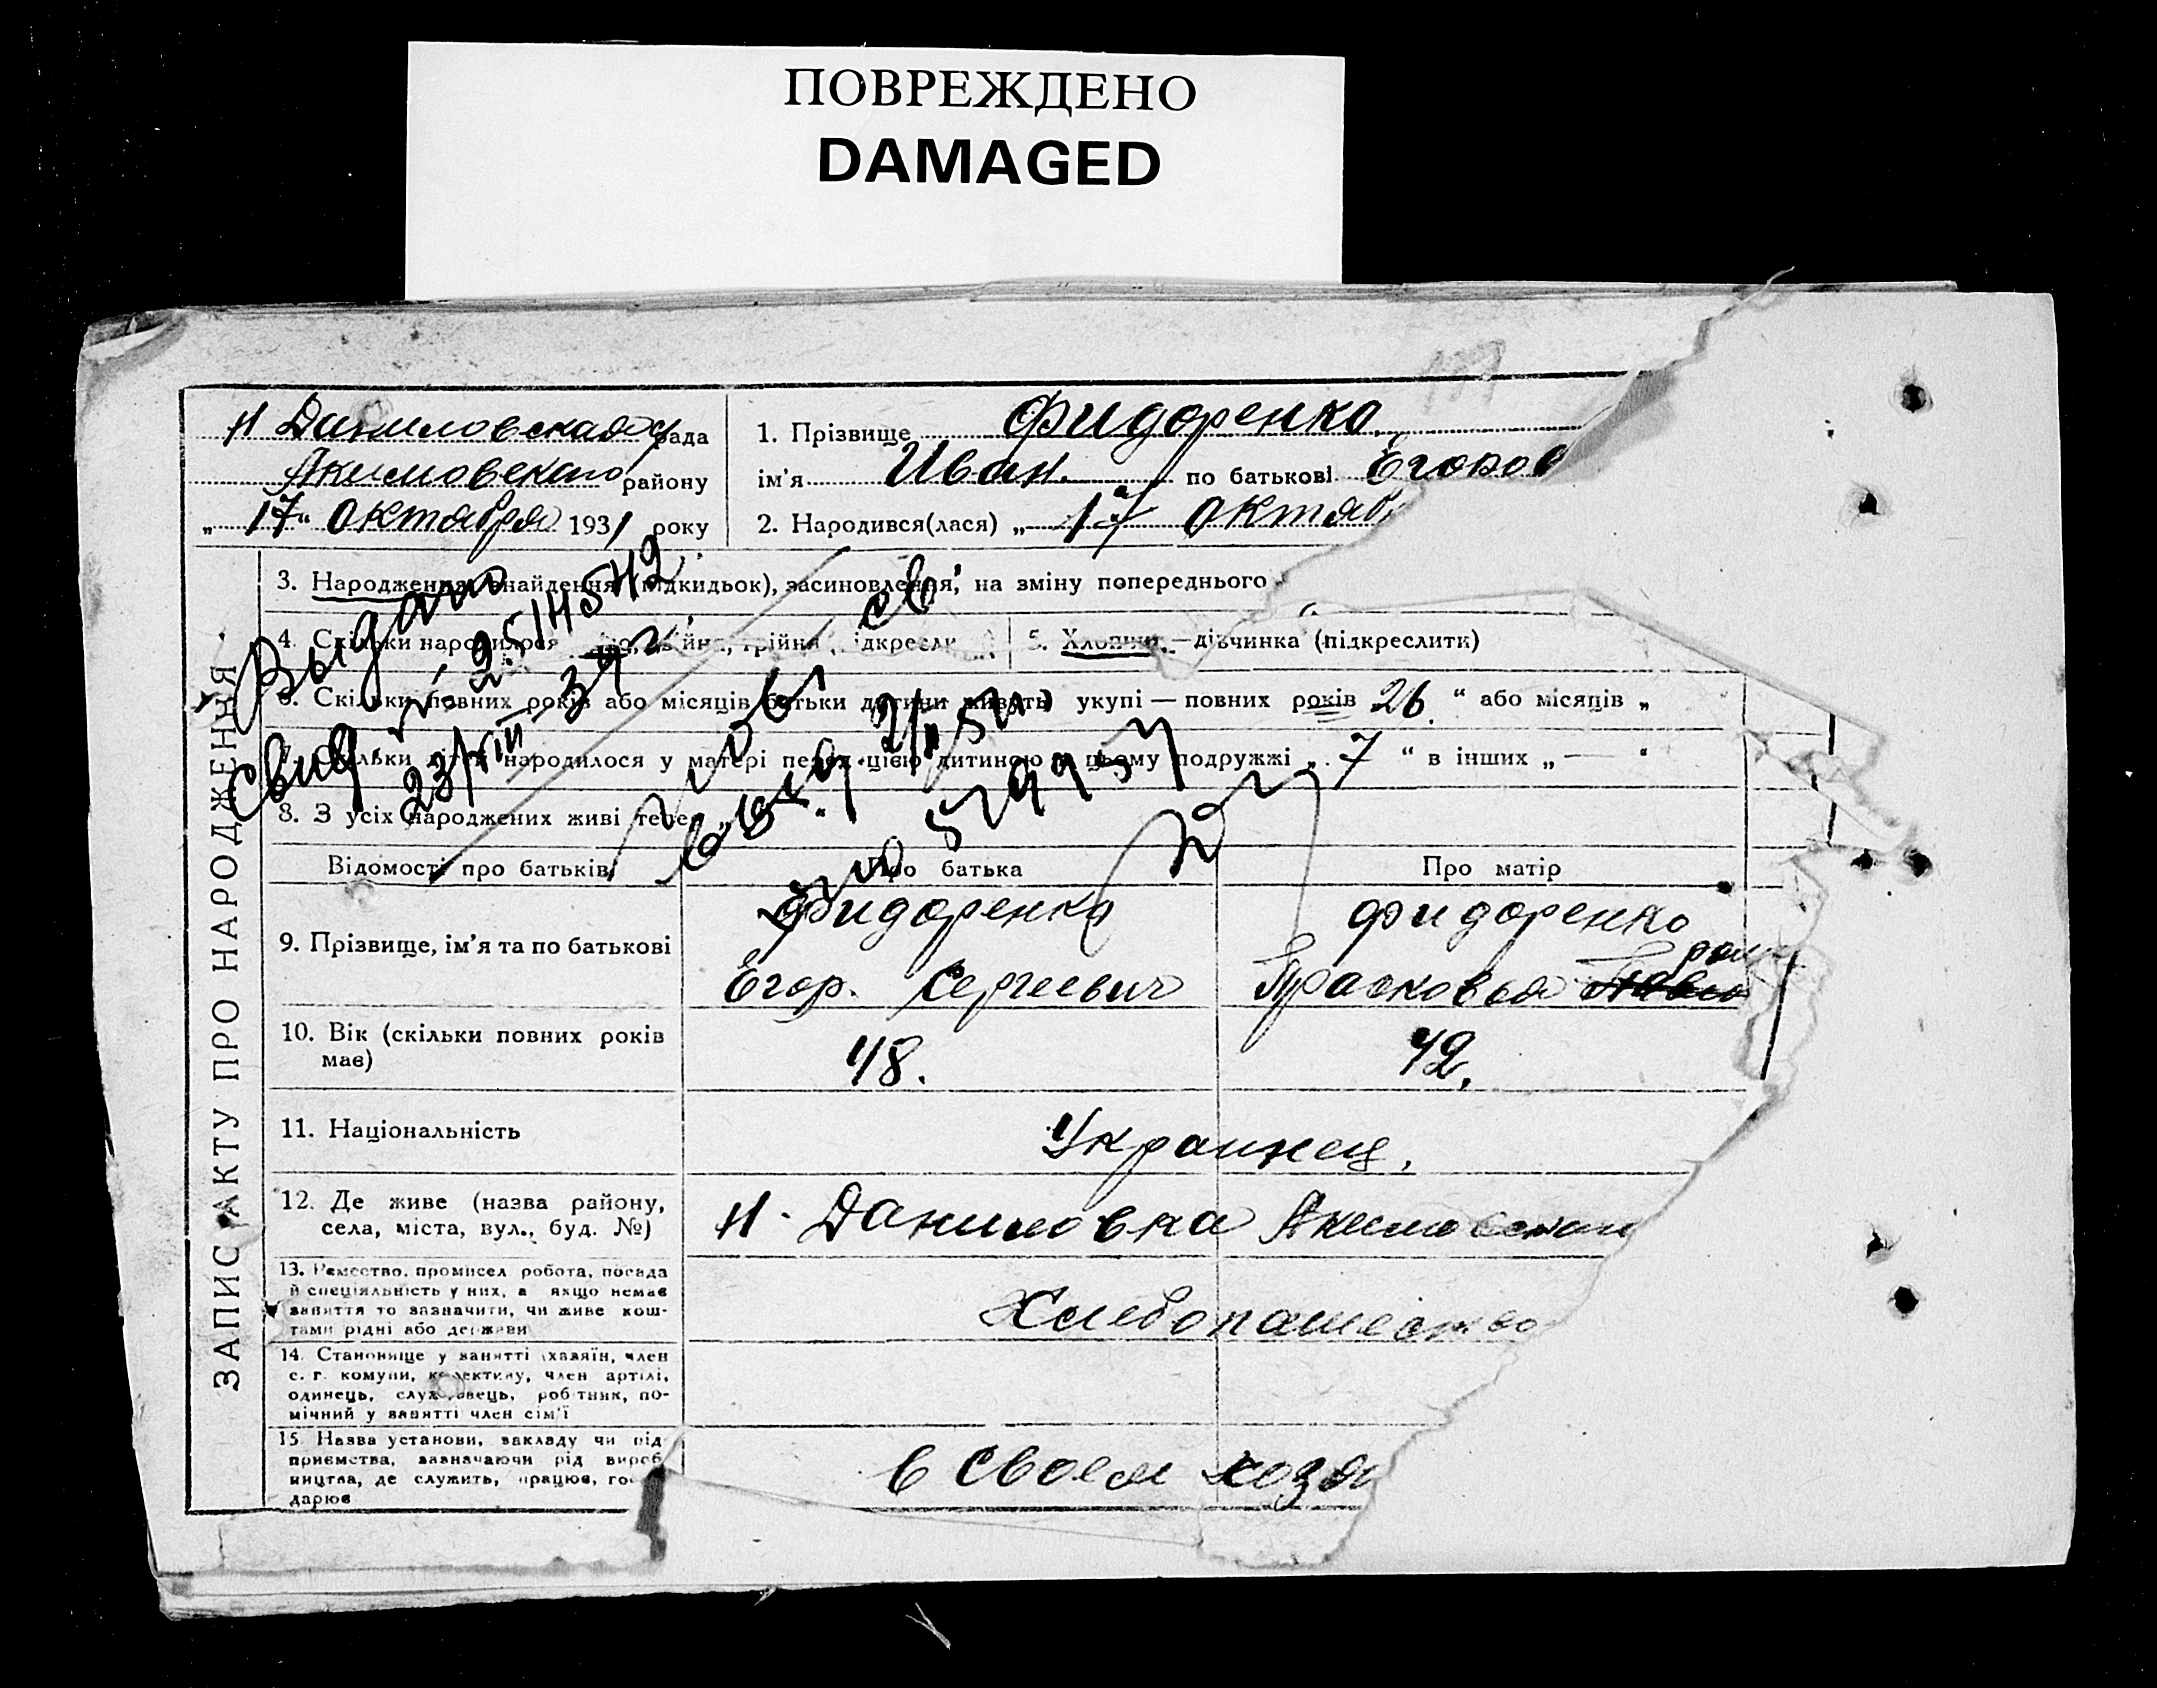 ПОВРЕЖДЕНО
DAMAGED
Н Даниловская рада
Акимовского району
„ 17 “ Октября 1931 року
1. Прізвище Фидоренко
ім'я Иван. по батькові Егоров
2. Народився(лася) „ 17 Октяб
ЗАПИС АКТУ ПРО НАРОДЖЕННЯ
3. Народження, знайдення (підкидьок), засиновлення, на зміну попереднього
4. Скільки народилося
5. Хлопчик — дівчинка (підкреслити)
6. Скільки повних років або місяців батьки дитини живуть укупі — повних років 26. “ або місяців „
народилося у матері перед цією дитиною в цьому подружжі „ 7 “ в інших „ — “
8. З усіх народжених живі тепер „
Выдано
свид № 2514542
23/VIII 34 г.
Відомості про батьків
Про батька
Про матір
9. Прізвище, ім'я та по батькові
Фидоренко
Егор. Сергеевич
Фидоренко
Прасковья
10. Вік (скільки повних років має)
48.
42.
11. Національність
Украинец.
12. Де живе (назва району,
села, міста, вул., буд. №)
Н. Даниловка Акимовскаи
13. Ремество, промисел робота, посада
й спеціяльність у них, а якщо немає
заняття то зазначити, чи живе кош-
тами рідні або держави
Хлебопашество
14. Становище у занятті (хазяїн, член
с. г. комуни, колективу, член артілі,
одинець, службовець, робітник, по-
мічний у занятті член сім'ї
15. Назва установи, закладу чи під
приємства, зазначаючи рід вироб
ництва, де служить, працює, гос
дарює
в своем хозя